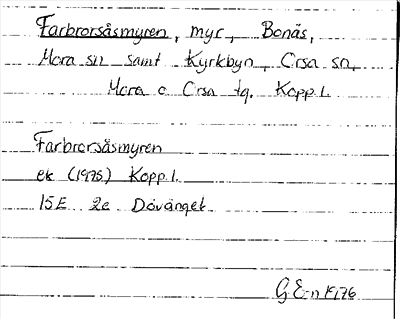 Farbrorsåsmyren, myr, Bonäs,
Mora sn samt Kyrkbyn, Orsa sn,
Mora o Orsa tg, Kopp.l.
Farbrorsåsmyren
ek (1975) Kopp.l.
15E 2e Dåvänget
GE-n 1976